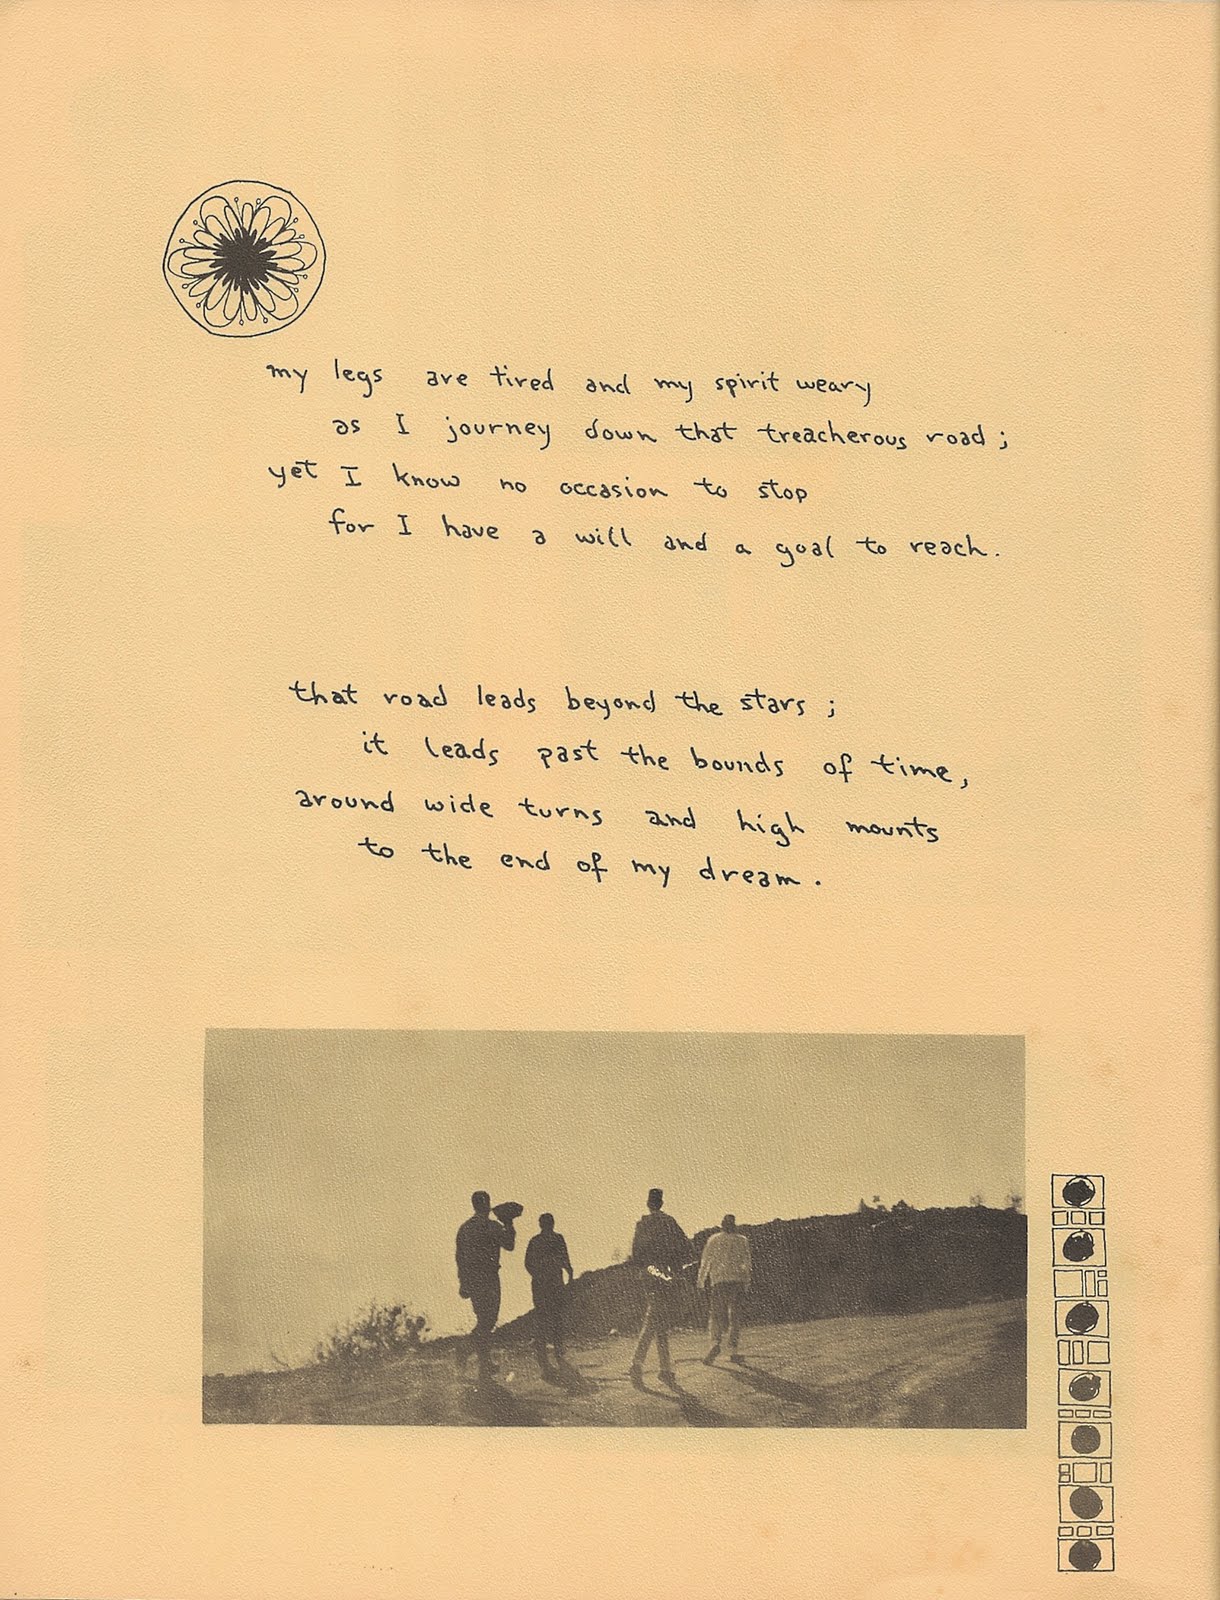 my legs are tired and my spirit weary
as I journey down that treacherous road;
yet I know no occasion to stop
for I have a will and a goal to reach.
that road leads beyond the stars;
it leads past the bounds of time,
around wide turns and high mounts
to the end of my dream.